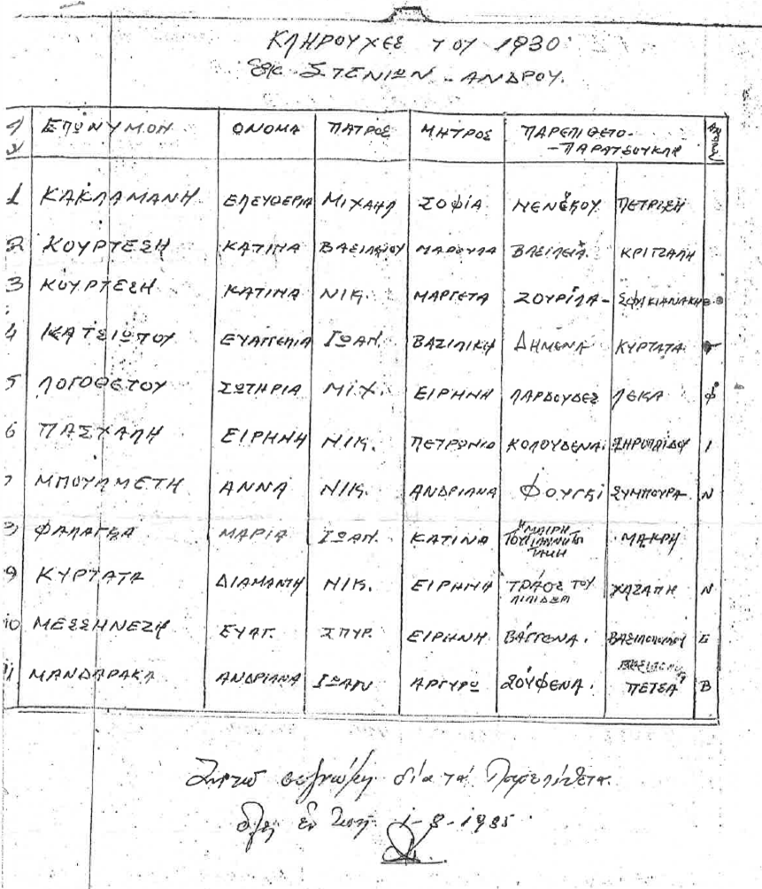 ΚΛΗΡΟΥΧΕΣ ΤΟΥ 1930
ΕΚ ΣΤΕΝΙΩΝ - ΑΝΔΡΟΥ.
ΕΠΩΝΥΜΟΝ ΟΝΟΜΑ ΠΑΤΡΟΣ ΜΗΤΡΟΣ ΠΑΡΕΠΙΘΕΤΟ-
-ΠΑΡΑΤΣΟΥΚΛΗ
1 ΚΑΚΛΑΜΑΝΗ ΕΛΕΥΘΕΡΙΑ ΜΙΧΑΗΛ ΣΟΦΙΑ ΜΕΝΕΚΟΥ ΠΕΤΡΙΣΗ
2 ΚΟΥΡΤΕΣΗ ΚΑΤΙΝΑ ΒΑΣΙΛΕΙΟΥ ΜΑΡΟΥΛΑ ΒΑΣΙΛΕΙΑ ΚΡΙΤΖΑΛΗ
3 ΚΟΥΡΤΕΣΗ ΚΑΤΙΝΑ ΝΙΚ. ΜΑΡΓΕΤΑ ΖΟΥΡΙΛΑ-
4 ΚΑΤΣΙΩΤΟΥ ΕΥΑΓΓΕΛΙΑ ΙΩΑΝ. ΒΑΣΙΛΙΚΗ ΔΗΜΕΝΑ ΚΥΡΤΑΤΑ
5 ΛΟΓΟΘΕΤΟΥ ΣΩΤΗΡΙΑ ΜΙΧ. ΕΙΡΗΝΗ ΛΑΡΔΟΥΔΕΣ ΛΕΚΑ Φ
6 ΠΑΣΧΑΛΗ ΕΙΡΗΝΗ ΝΙΚ. ΠΕΤΡΩΝΙΩ ΚΟΛΟΥΔΕΝΑ. Ι
ΜΠΟΥΛΜΕΤΗ ΑΝΝΑ ΝΙΚ. ΑΝΔΡΙΑΝΑ ΦΟΥΓΚΙ ΣΥΜΠΟΥΡΑ Ν
ΦΑΛΑΓΓΑ ΜΑΡΙΑ ΙΩΑΝ. ΚΑΤΙΝΑ Η ΜΑΙΡΗ ΜΑΚΡΗ
9 ΚΥΡΤΑΤΑ ΔΙΑΜΑΝΤΗ ΝΙΚ. ΕΙΡΗΝΗ ΤΡΑΟΣ ΤΟΥ ΧΑΖΑΠΗ Ν
10 ΜΕΣΣΗΝΕΖΗ ΕΥΑΓ. ΣΠΥΡ. ΕΙΡΗΝΗ ΒΑΓΓΕΝΑ. ΒΑΣΙΛΟΠΟΥΛΟΥ Ε
ΜΑΝΔΑΡΑΚΑ ΑΝΔΡΙΑΝΑ ΙΩΑΝ ΑΡΓΥΡΩ ΖΟΥΦΕΝΑ. ΠΕΤΣΑ Β
Ζητώ συγνώμη δία τά Παρεπίθετα.
1-8-1985